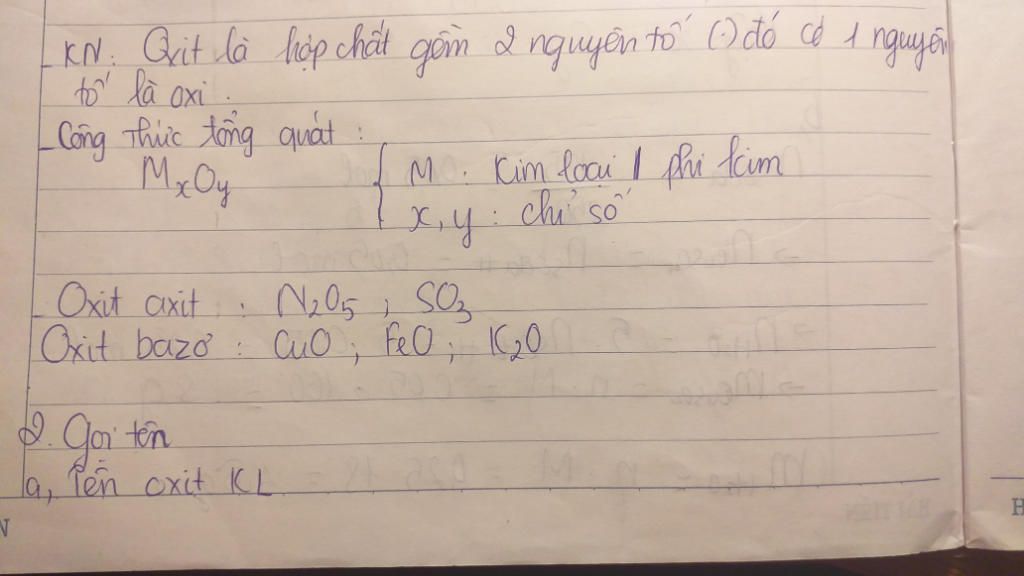 - KN: Oxit là hợp chất gồm 2 nguyên tố (.) đó có 1 nguyên
tố là oxi.
- Công thức tổng quát:
MxOy { M: Kim loại / phi kim
x, y: chỉ số
- Oxit axit: N2O5; SO3
Oxit bazơ: CuO; FeO; K2O
2. Gọi tên
a, Tên oxit KL
N
H